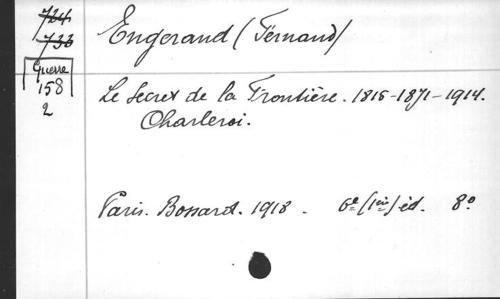 724
733
Guerre
158
2
Engerand (Fernand)
Le Secret de la Frontière. 1815-1871-1914.
Charleroi.
Paris. Bossard. 1918. 6e (1ère) éd. 8°